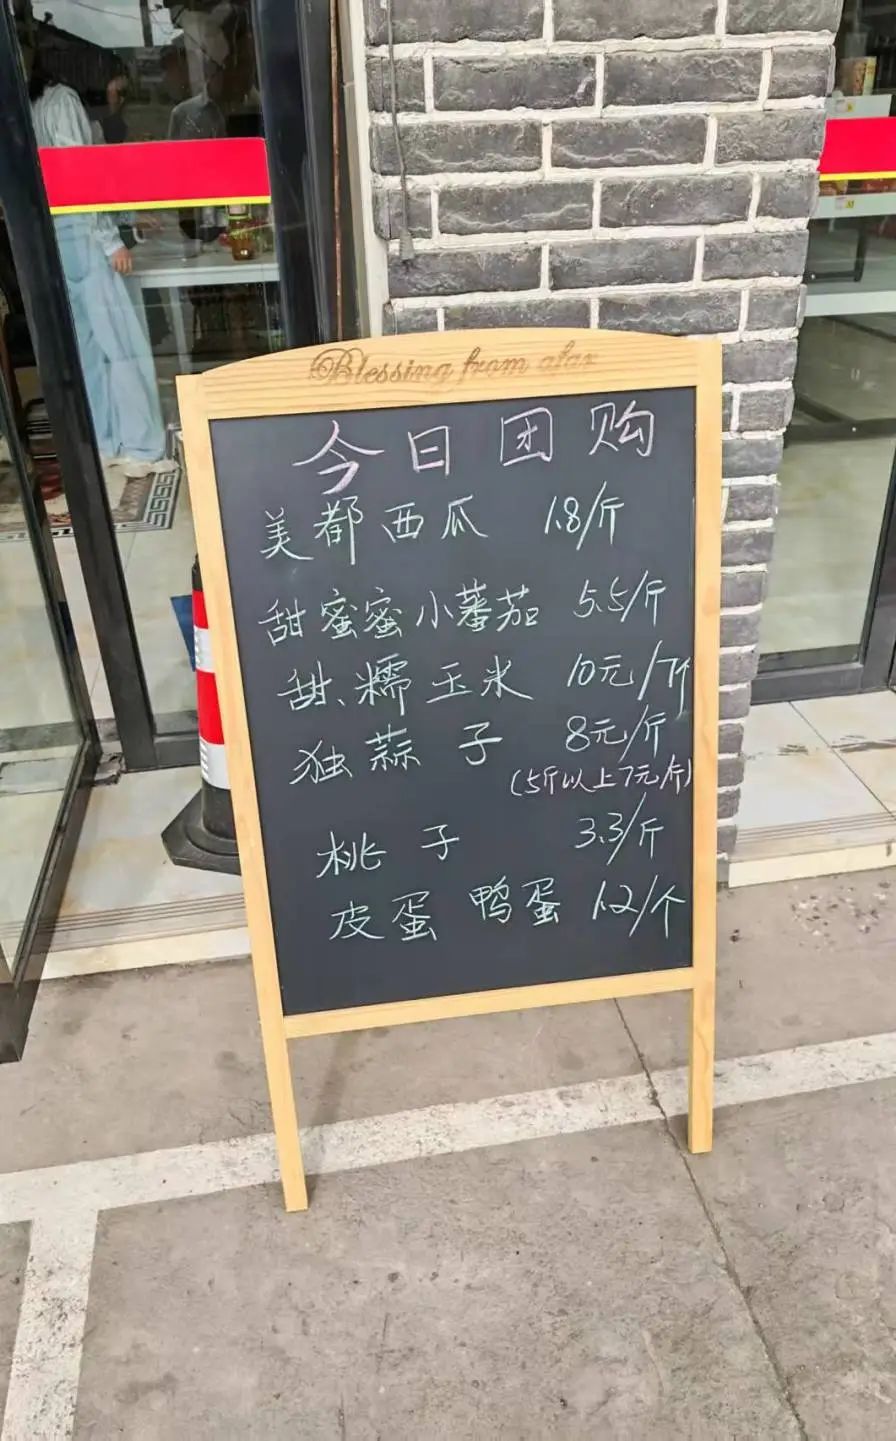 Blessing from afar
今日团购
美都西瓜 1.8/斤
甜蜜蜜小蕃茄 5.5/斤
甜、糯玉米 10元/7个
独蒜子 8元/斤
(5斤以上7元/斤)
桃子 3.3/斤
皮蛋 鸭蛋 1.2/个